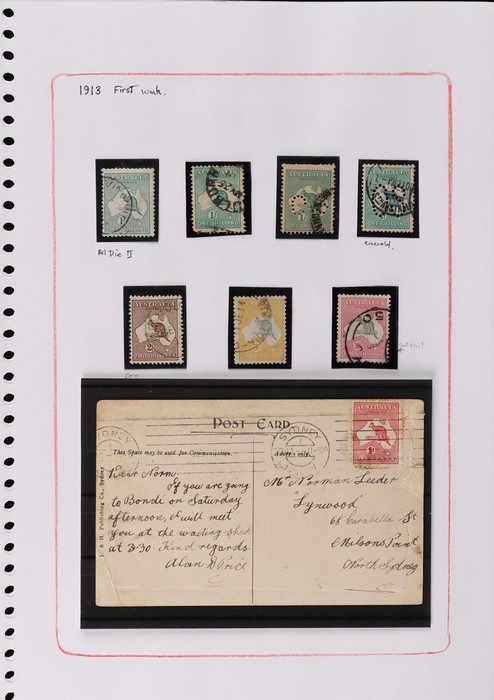 1913 First wmk.
AUSTRALIA
ONE SHILLING
AUSTRALIA
1/-
ONE SHILLING
AUSTRALIA
1/-
ONE SHILLING
AUSTRALIA
Die II
emerald.
AUSTRALIA
2/-
TWO SHILLINGS
AUSTRALIA
AUSTRALIA
POST CARD
This Space may be used for Communication.
Address only.
SYDNEY
SYDNEY
AUSTRALIA
1d
Dear Norm,
If you are going
to Bondi on Saturday
afternoon, I will meet
you at the waiting shed
at 3.30. Kind regards.
Alan D Price
Mr Norman Leeder
"Lynwood"
68 Carabella St
Milsons Point
North Sydney
Publishing Co., Sydney